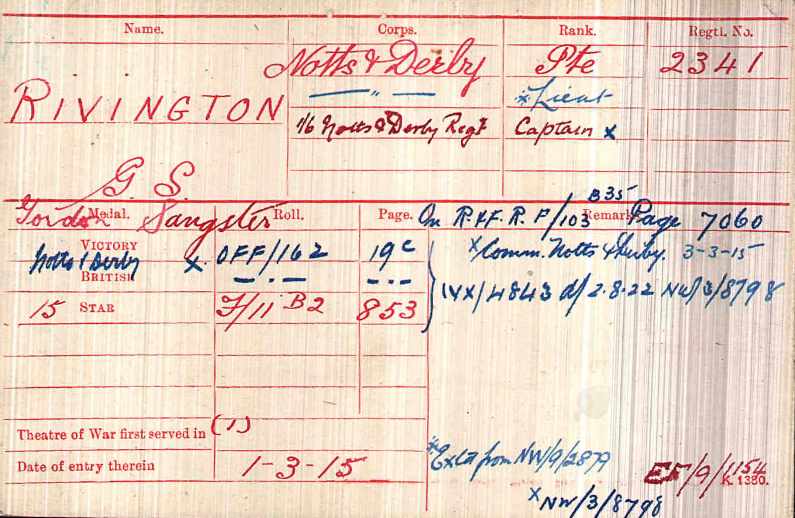 Name. Corps. Rank. Regtl. No.
RIVINGTON Notts & Derby Pte 2341
— " — * Lieut
1/6 Notts & Derby Regt Captain x
G. S.
Gordon Sangster
Medal. Roll. Page. Remarks
On R. & F. R. F/103 B35 Page 7060
VICTORY x OFF/162 19c x Comm. Notts & Derby. 3-3-15
Notts & Derby
BRITISH — . — — . — IVX/4843 d/ 2.8.22 NW/3/8798
15 STAR F/11 B2 853
Theatre of War first served in (1)
Date of entry therein 1-3-15
* Exct from NW/9/2879
EF/9/1154
K. 1380.
x NW/3/8798